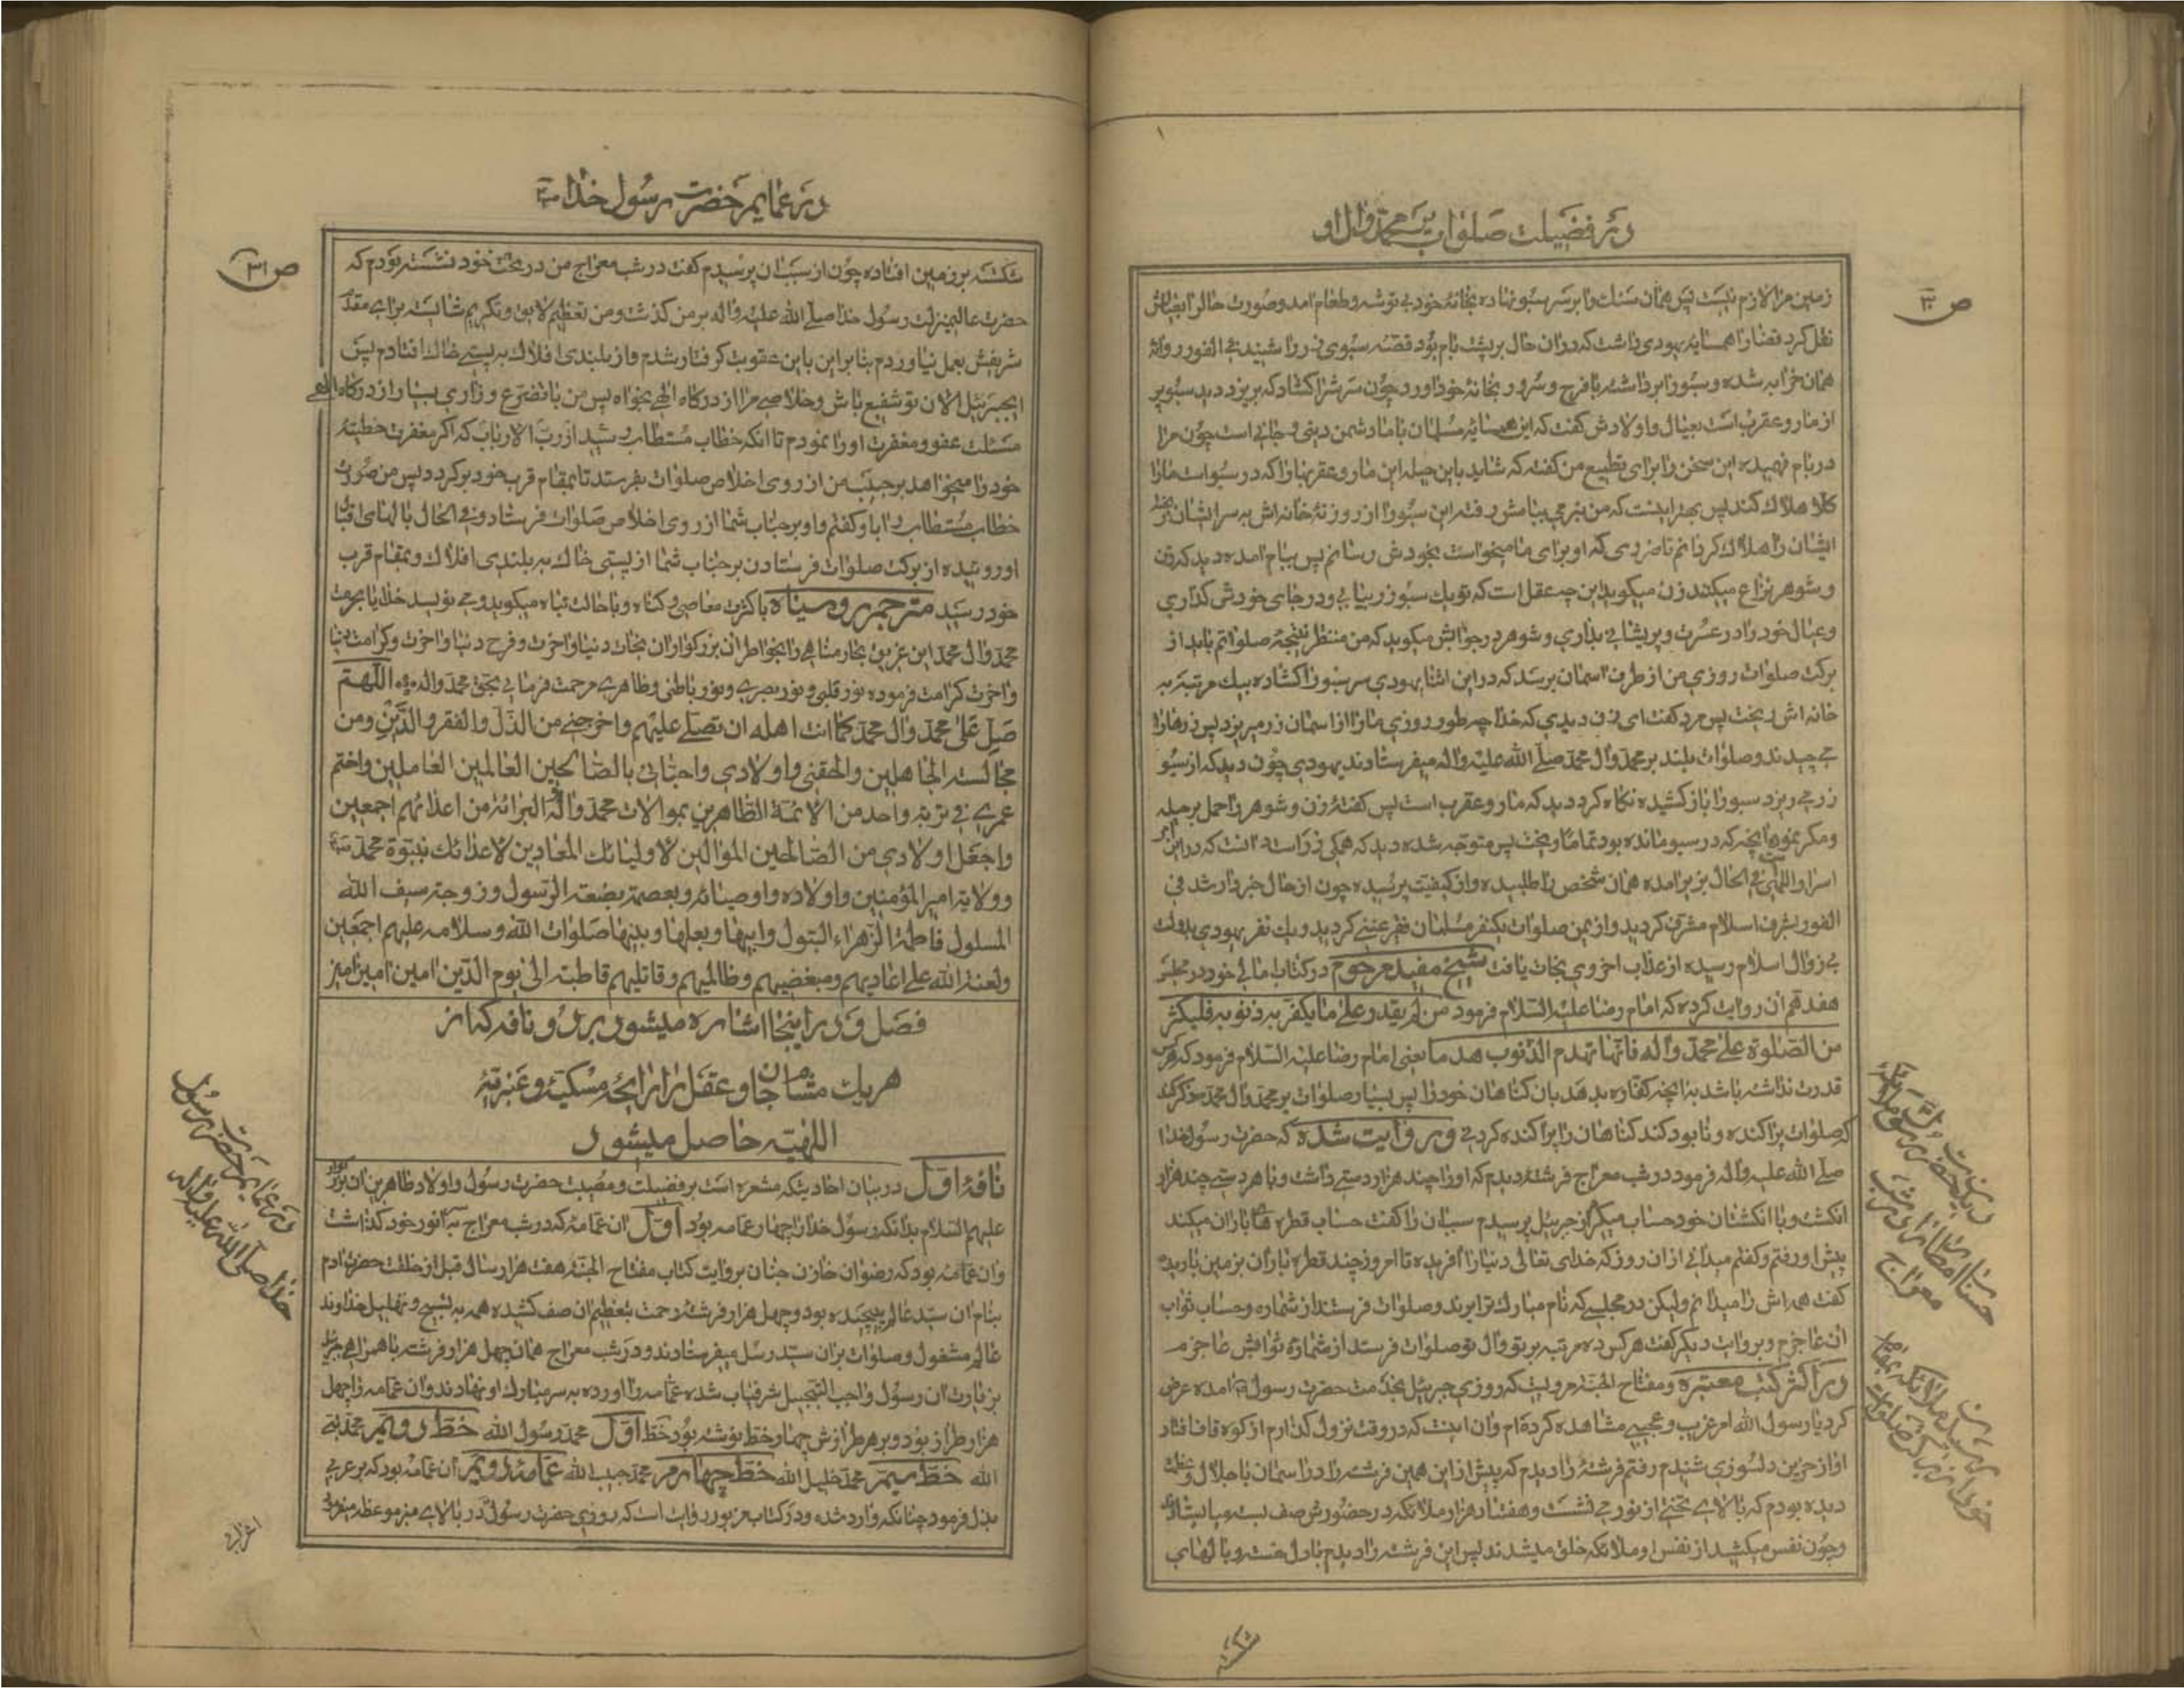 در فضیلت صلوات بر محمد وال او
ص ۳۰
زمین مرا لازم نیست پس همان سنك را بر سر سبو نهاده بخانۀ خود بی توشه وطعام امد وصورت حال را بعیالش
نقل کرد قضارا همسایه یهودی داشت که در ان حال بر پشت بام بود قصه سبوی زر را شنید فی الفور روانۀ
همان خرابه شده وسبو را برداشته با فرح وسرور بخانۀ خود اورد چون سرش را کشاد که بریزد دید سبو پر
از مار وعقرب است بعیال واولادش کفت که این همسایه مسلمان با ما دشمن دینی وجانی است چون مرا
در بام فهمیده این سخن را برای تطمیع من کفته که شاید باین حیله این مار وعقربها را که در سبو است مارا
کلا هلاك کند پس بهتر اینست که من نیز می ببامش رفته این سبو را از روزنۀ خانه اش به سر ایشان
ایشان را هلاك کردانم تا ضرری که او برای ما میخواست بخودش رسانم پس ببام امده دید که زن
وشوهر نزاع میکنند زن میکوید این چه عقل است که تو یك سبو زر بیابی ودر جای خودش کذاری
وعیال خود را در عسرت وپریشانی بداری وشوهر در جوابش میکوید که من منتظر نتیجۀ صلواتم باید از
برکت صلوات روزی من از طرف اسمان برسد که در این اثنا یهودی سر سبو را کشاده بیك مرتبه به
خانه اش ریخت پس مرد کفت ای زن دیدی که خدا چه طور روزی مارا از اسمان زر میریزد پس زرها را
می چیدند وصلوات بلند بر محمد وال محمد صلی الله علیه واله میفرستادند یهودی چون دید که از سبو
زر می ریزد سبو را باز کشیده نکاه کرد دید که مار وعقرب است پس کفتۀ زن وشوهر را حمل بر حیله
ومکر نموده انچه که در سبو مانده بود تماما ریخت پس متوجه شده دید که همکی زر است دانست که در این امر
اسرار الهی است فی الحال بزیر امده همان شخص را طلبیده واز کیفیت پرسیده چون از حال خبردار شد فی
الفور بشرف اسلام مشرف کردید واز یمن صلوات یکنفر مسلمان فقیر غنی کردید ویك نفر یهودی بدولت
بی زوال اسلام رسیده از عذاب اخروی نجات یافت شیخ مفید مرحوم در کتاب امالی خود در مجلس
هفدهم ان روایت کرده که امام رضا علیه السلام فرمود من لم یقدر علی ما یکفر به ذنوبه فلیکثر
من الصلوة علی محمد واله فانها تهدم الذنوب هدما یعنی امام رضا علیه السلام فرمود که هرکس
قدرت نداشته باشد به انچه کفاره بدهد بان کناهان خود را پس بسیار صلوات بر محمد وال محمد
که صلوات پراکنده ونابود کند کناهان را پراکنده کردنی وروایت شده که حضرت رسول خدا
صلی الله علیه واله فرمود در شب معراج فرشته دیدم که او را چند هزار دست داشت وبا هر دستی چند هزار
انکشت وبا انکشتان خود حساب میکرد از جبرئیل پرسیدم سبب ان را کفت حساب قطره های باران میکند
پیش او رفتم وکفتم میدانی از ان روز که خدای تعالی دنیا را افریده تا امروز چند قطره باران بزمین باریده
کفت همه اش را میدانم ولیکن در مجلسی که نام مبارك ترا برند وصلوات فرستند از شماره وحساب ثواب
ان عاجزم وبروایت دیکر کفت هرکس ده مرتبه بر تو وال تو صلوات فرستد از شمارۀ ثوابش عاجزم
در اکثر کتب معتبره ومفتاح الجنه مرویست که روزی جبرئیل بخدمت حضرت رسول امده عرض
کرد یا رسول الله امر غریب وعجیبی مشاهده کرده ام وان اینست که در وقت نزول کذارم از کوه قاف افتاد
اواز حزین دلسوزی شنیدم رفتم فرشتۀ را دیدم که پیش از این همین فرشته را در اسمان با جلال
دیده بودم که بالای تختی از نور می نشست وهفتاد هزار ملائکه در حضورش صف بسته میایستادند
وچون نفس میکشید از نفس او ملائکه خلق میشدند پس این فرشته را دیدم با دل خسته وبالهای
شکسته
در عمایم حضرت رسول خدا
ص ۳۱
شکسته بر زمین افتاده چون از سبب ان پرسیدم کفت در شب معراج من در تخت خود نشسته بودم که
حضرت عالیمنزلت رسول خدا صلی الله علیه واله بر من کذشت ومن تعظیم لایق وتکریم شایسته برای مقدم
شریفش بعمل نیاوردم بنابراین باین عقوبت کرفتار شدم واز بلندی افلاك به پستی خاك افتادم پس
ایجبرئیل الان تو شفیع باش وخلاصی مرا از درکاه الهی بخواه پس من با تضرع وزاری بسیار از درکاه الهی
مسئلت عفو ومغفرت او را نمودم تا انکه خطاب مستطاب رسید از رب الارباب که اکر مغفرت خطیئۀ
خود را میخواهد بر حبیب من از روی اخلاص صلوات بفرستد تا بمقام قرب خود برکردد پس من صورت
خطاب مستطاب را باو کفتم واو بر جناب شما از روی اخلاص صلوات فرستاد وفی الحال بالهای اقبال
او روئیده از برکت صلوات فرستادن بر جناب شما از پستی خاك به بلندی افلاك وبمقام قرب
خود رسید مترجم روسیاه با کثرت معاصی وکناه وبا حالت تباه میکوید ومی نویسد خدایا بحرمت
محمد وال محمد این غریق بحار مناهی را بخواطر ان بزرکواران نجات دنیا واخرت وفرح دنیا واخرت وکرامت دنیا
واخرت کرامت فرموده نور قلبی ونور بصری ونور باطنی وظاهری مرحمت فرمائی بحق محمد واله اللهم
صل علی محمد وال محمد کما انت اهله ان تصلی علیهم واخرجنی من الذل والفقر والدین ومن
مجالسة الجاهلین والحقنی واولادی واحبائی بالصالحین العالمین العاملین واختم
عمری فی تربة واحد من الائمة الطاهرین بموالات محمد واله والبرائة من اعدائهم اجمعین
واجعل اولادی من الصالحین الموالین لاولیائك المعادین لاعدائك بنبوة محمد
وولایة امیر المؤمنین واولاده واوصیائه وبعصمة بضعة الرسول وزوجة سیف الله
المسلول فاطمة الزهراء البتول وابیها وبعلها وبنیها صلوات الله وسلامه علیهم اجمعین
ولعنة الله علی اعادیهم ومبغضیهم وظالمیهم وقاتلیهم قاطبة الی یوم الدین امین امین
فصل و در اینجا اشاره میشود بر دو نافه که از
هریك مشامان جان وعقل را رایحۀ مسکیه وعنبریه
اللهیه حاصل میشود
نافۀ اول در بیان احادیثی که مشعره است بر فضیلت ومصیبت حضرت رسول واولاد طاهرین ان بزرکوار
علیهم السلام بدانکه رسول خدا را چهار عمامه بود اول ان عمامۀ که در شب معراج بسر انور خود کذاشت
وان عمامه بود که رضوان خازن جنان بروایت کتاب مفتاح الجنه هفت هزار سال قبل از خلقت حضرت ادم
بنام ان سید عالم پیچیده بود وچهل هزار فرشتۀ رحمت بتعظیم ان صف کشیده همه به تسبیح وتهلیل خداوند
عالم مشغول وصلوات بر ان سید رسل میفرستادند ودر شب معراج همان چهل هزار فرشته با همراهی جبرئیل
بزیارت ان رسول واجب التبجیل شرفیاب شده عمامه را اورده به سر مبارك او نهادند وان عمامه را چهل
هزار طراز بود وبر هر طرازش چهار خط نوشته بود خط اول محمد رسول الله خط دویم محمد نبی
الله خط سیم محمد خلیل الله خط چهارم محمد حبیب الله عمامۀ دویم ان عمامه بود که بر عربی
بذل فرمود چنانکه وارد شده ودر کتاب مزبور روایت است که روزی حضرت رسول در بالای منبر موعظه میفرمود
در عمایم حضرت رسول
خدا صلی الله علیه واله